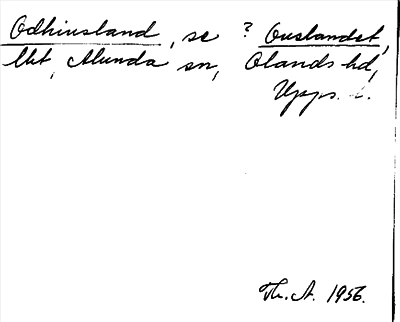 Odhinsland, se ? Onslandet,
lht, Alunda sn, Olands hd,
Upps. l.
Th. A. 1956.